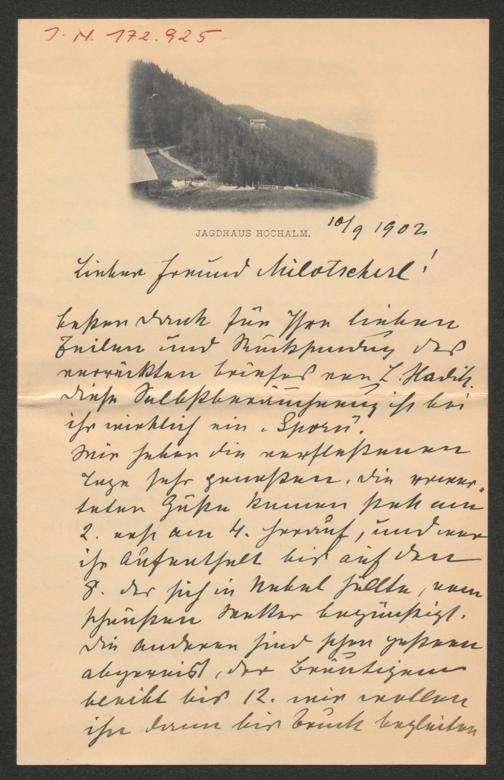 J. N. 172.925
JAGDHAUS HOCHALM.
10/9 1902
Lieber Freund Milotscherl!
besten Dank für Ihre lieben
Zeilen und Rücksendung des
verrückten Briefes von L. Hadik.
diese Selbstberäucherung ist bei
ihr wirklich ein „Sporn".
Wir haben die verflossenen
Tage sehr genossen. die erwar-
teten Gäste kamen statt am
2. erst am 4. herauf, und war
ihr Aufenthalt bis auf den
8. der sich in Nebel hüllte, vom
schönsten Wetter begünstigt.
die anderen sind schon gestern
abgereist, der Bräutigam
bleibt bis 12. wir wollen
ihn dann bis Bruck begleiten